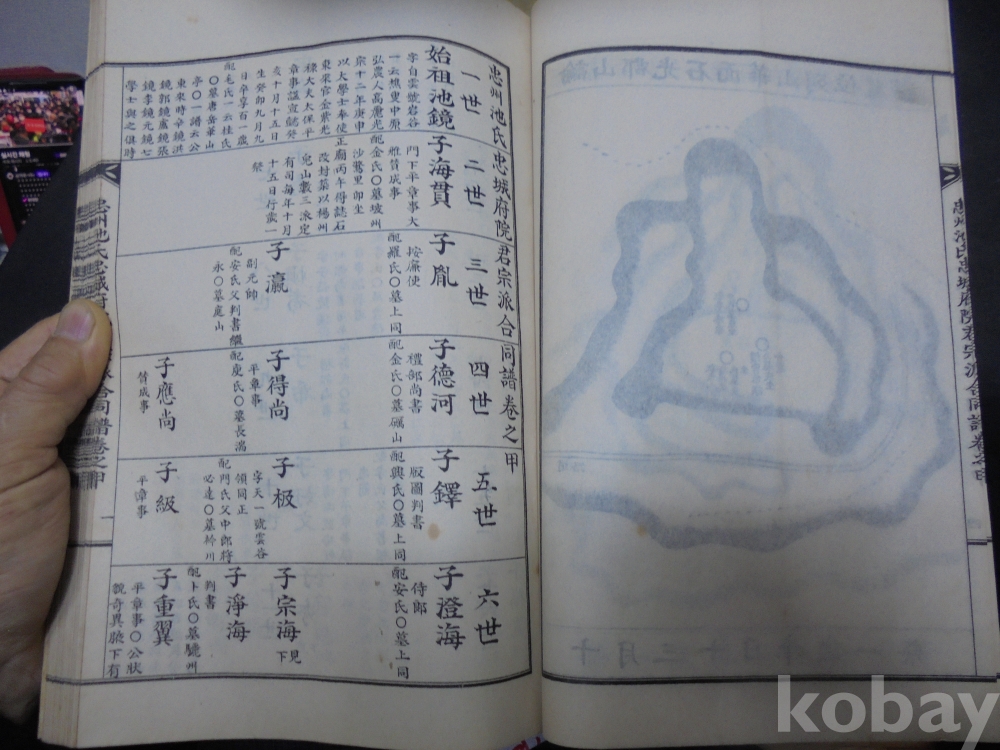 忠州池氏忠城府院君宗派合同譜卷之甲
一世
始祖池鏡
字自雲號岩谷
一云樵叟中原
弘農人高麗光
宗十二年庚申
以大學士奉使
東來官金紫光
祿大夫太保平
章事謚宣懿癸
亥十月十五日
生癸卯九月九
日卒享百一歲
配毛氏一云桂氏
〇墓唐華山
亭〇一譜云公
東來時辛鏡洪
鏡郭鏡盧鏡張
鏡李鏡元鏡七
學士與之俱時
二世
子海貫
門下平章事大
雅贊成事
配金氏〇墓坡州
沙鶩里卯坐
正廟丙午得誌石
改封築以楊州
兔山數三派定
有司每年十月
十五日行歲一
祭
三世
子胤
按廉使
配羅氏〇墓上同
子瀛
副元帥
配安氏父判書繼
永〇墓處山
四世
子德河
禮部尙書
配金氏〇墓礪山
子得尙
平章事
配庾氏〇墓長湍
子應尙
贊成事
五世
子鐸
版圖判書
配興氏〇墓上同
子极
字天一號雲谷
領同正
配門氏父中郎將
必達〇墓幹川
子級
平章事
六世
子澄海
侍郎
配安氏〇墓上同
子宗海見下
子淨海
判書
配卜氏〇墓驪州
子重翼
平章事〇公狀
貌奇異腋下有
忠州池氏忠城府院君宗派合同譜卷之甲
一
忠州池氏忠城府院君宗派合同譜卷之甲
kobay